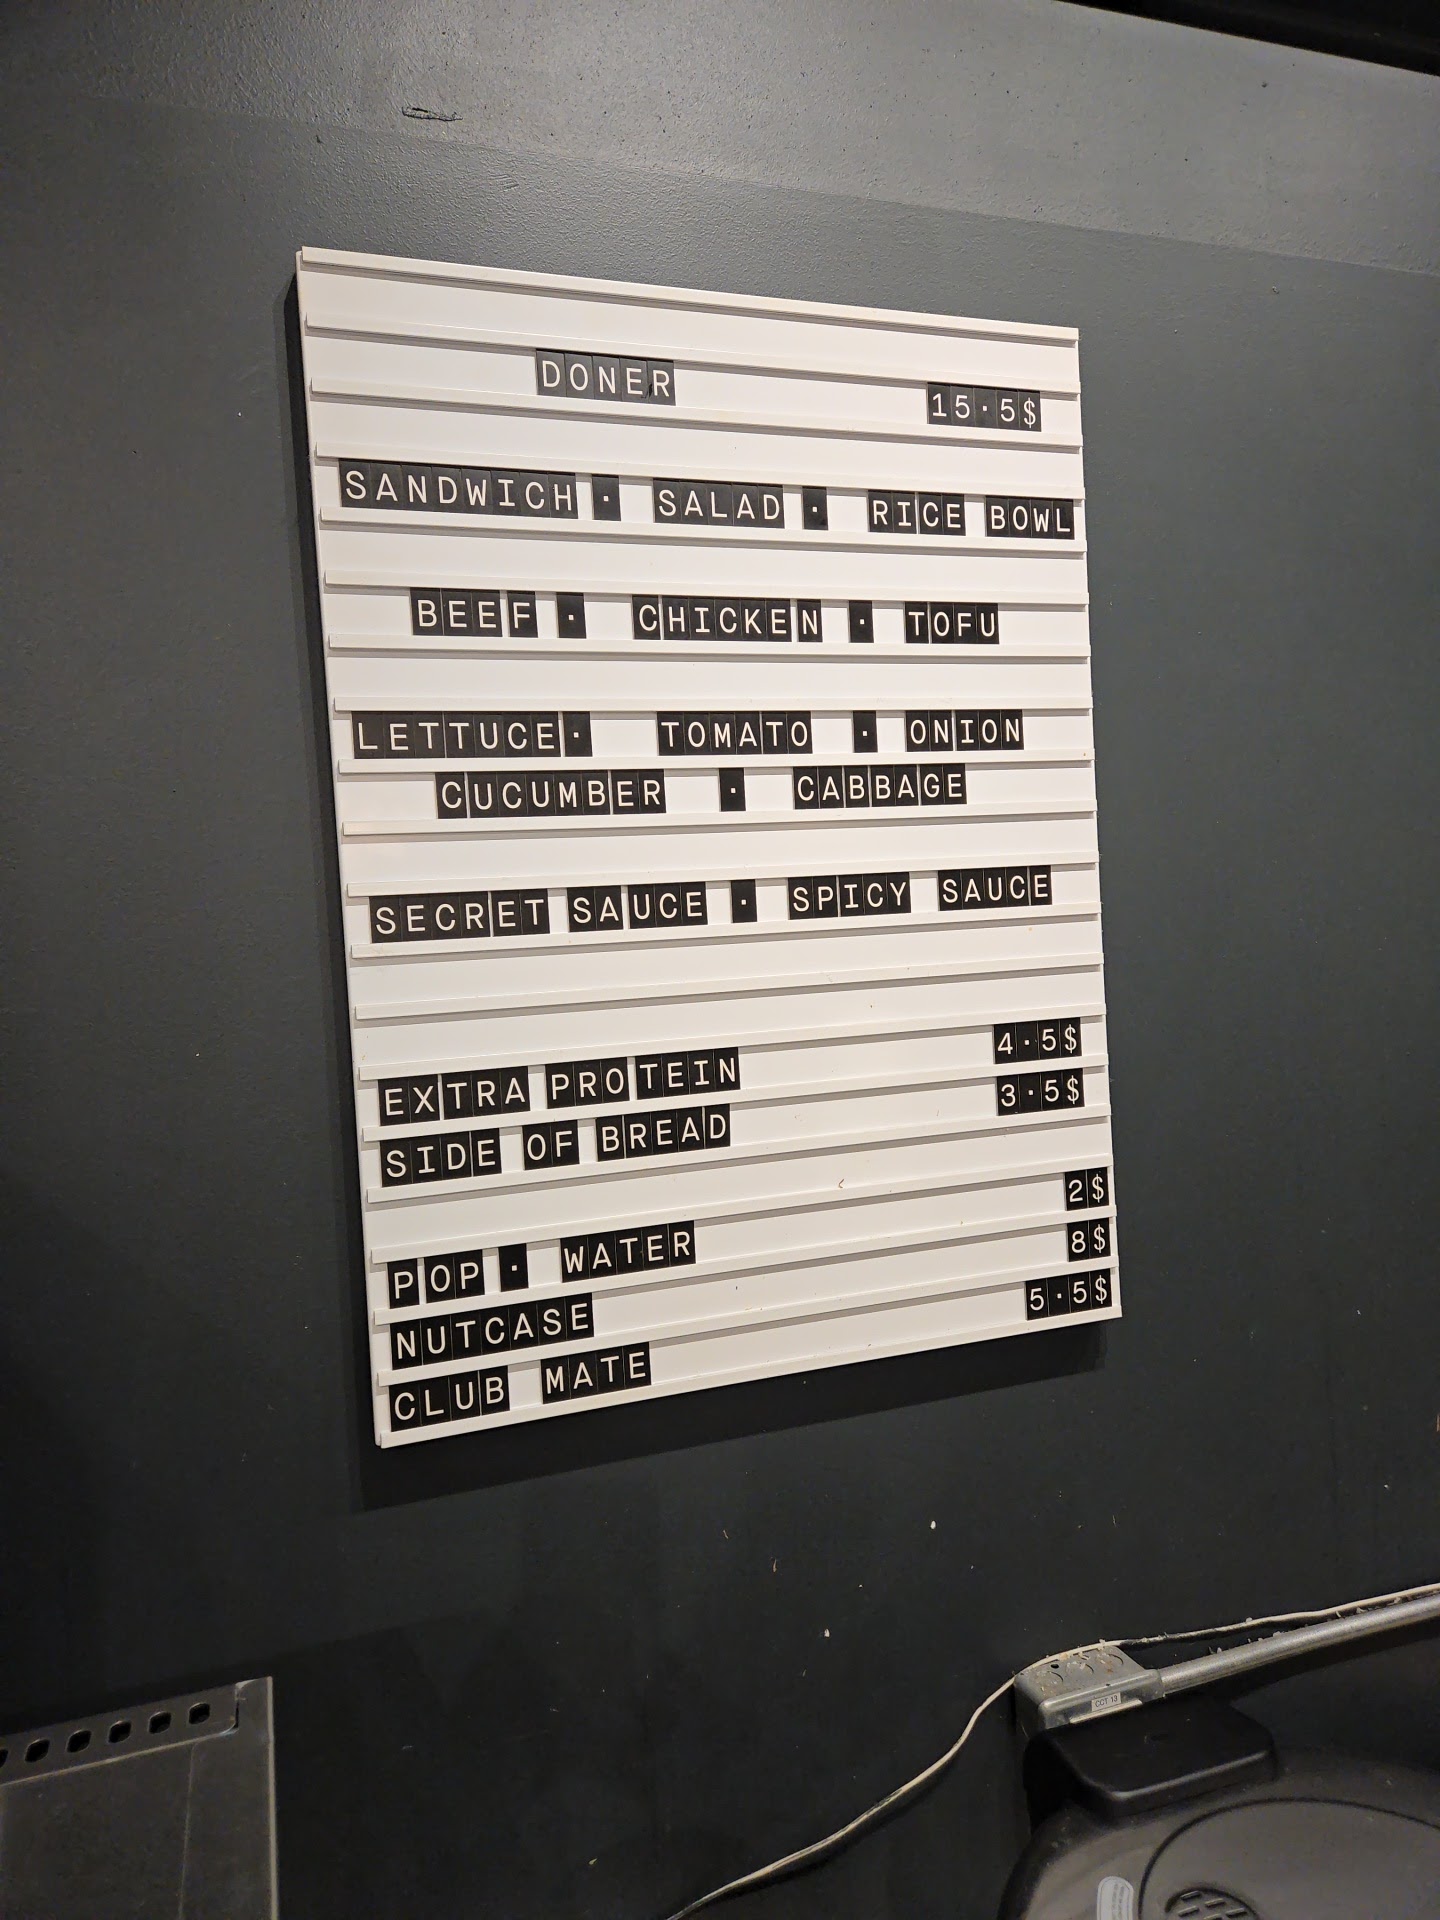 DONER 15.5$
SANDWICH · SALAD · RICE BOWL
BEEF · CHICKEN · TOFU
LETTUCE · TOMATO · ONION
CUCUMBER · CABBAGE
SECRET SAUCE · SPICY SAUCE
EXTRA PROTEIN 4.5$
SIDE OF BREAD 3.5$
POP · WATER 2$
NUTCASE 8$
CLUB MATE 5.5$
CCT 13